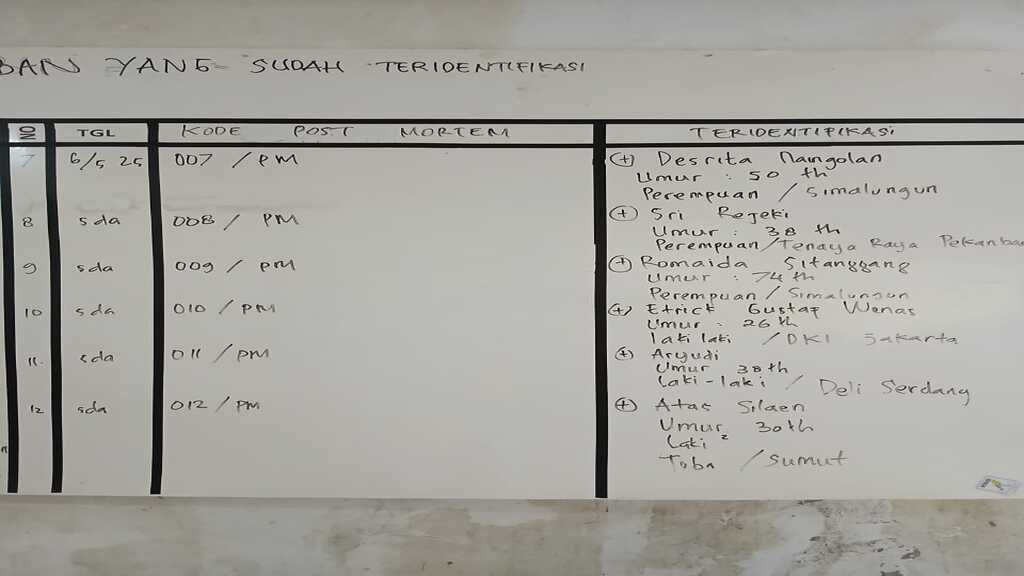 BAN YANG SUDAH TERIDENTIFIKASI
NO TGL KODE POST MORTEM TERIDENTIFIKASI
7 6/5 25 007 / PM (+) Desrita Naingolan
Umur : 50 th
Perempuan / Simalungun
8 sda 008 / PM (+) Sri Rejeki
Umur : 38 th
Perempuan / Tenaya Raya Pekanba
9 sda 009 / PM (+) Romaida Sitanggang
Umur : 74 th
Perempuan / Simalungun
10 sda 010 / PM (+) Etrick Gustaf Wenas
Umur : 26 th
laki laki / DKI Jakarta
11. sda 011 / PM (+) Aryudi
Umur 38 th
Laki-laki / Deli Serdang
12 sda 012 / PM (+) Atas Silaen
Umur 30 th
Laki ²
Toba / Sumut